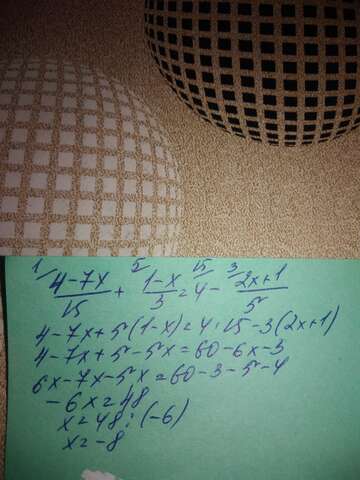 1/ 4-7x/15 + 5/ 1-x/3 = 15/ 4 - 3/ 2x+1/5
4-7x+5(1-x)=4·15-3(2x+1)
4-7x+5-5x=60-6x-3
6x-7x-5x=60-3-5-4
-6x=48
x=48:(-6)
x=-8